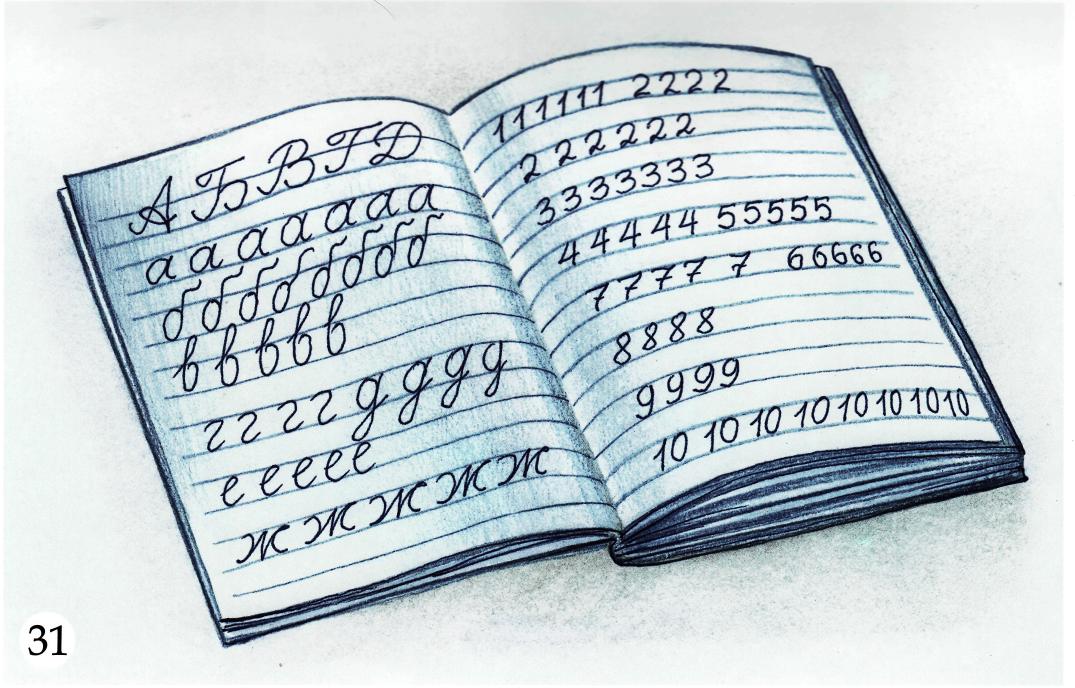 А Б В Г Д
а а а а а а а
б б б б б б б б
в в в в в
г г г г д д д д
е е е е е
ж ж ж ж ж
111111 2222
2 2 2 2 2 2
3333333
4 4 4 4 4 55555
7 7 7 7 7 66666
8888
9999
10 10 10 10 10 10 10 10
31